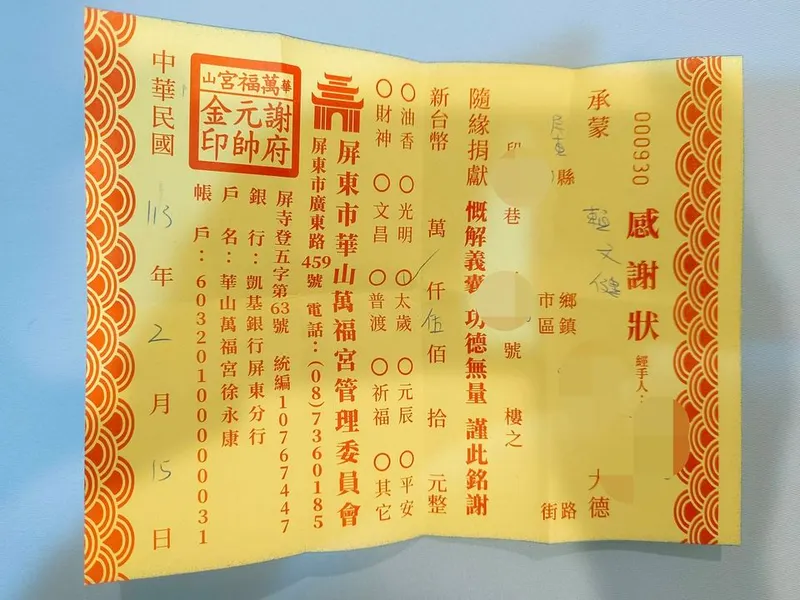 000930
感謝狀 經手人：
承蒙 賴文健 大德
屏東縣 鄉鎮市區 路街
段 巷 號 樓之
隨緣捐獻 慨解義囊 功德無量 謹此銘謝
新台幣 萬 仟 伍佰 拾 元整
〇油香 〇光明 〇太歲 〇元辰 〇平安
〇財神 〇文昌 〇普渡 〇祈福 〇其它
屏東市華山萬福宮管理委員會
屏東市廣東路459號 電話：(08)7360185
屏寺登五字第63號 統編10767447
銀行：凱基銀行屏東分行
戶名：華山萬福宮徐永康
帳戶：60320100000031
華山萬福宮
謝府元帥金印
中華民國 113 年 2 月 15 日